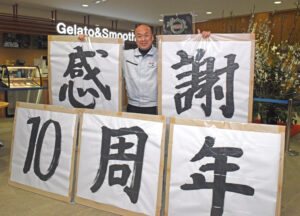 Gelato&Smooth
感謝
10周年